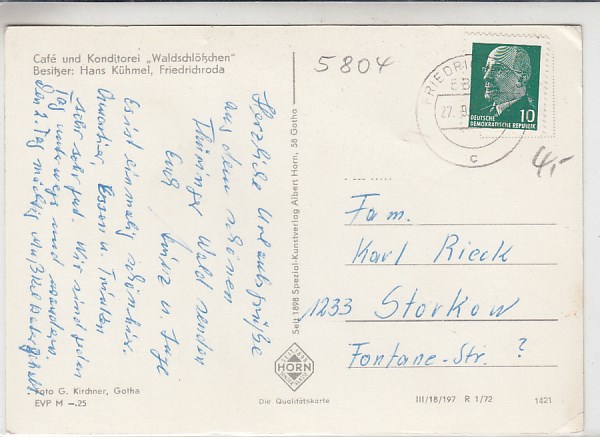 Café und Konditorei „Waldschlößchen"
Besitzer: Hans Kühmel, Friedrichroda
5804
FRIEDRIC
27.
c
10
DEUTSCHE
DEMOKRATISCHE REPUBLIK
4,-
Herzliche Urlaubsgrüße
aus dem schönen
Thüringer Wald senden
Euch
u. Inge
Es ist einmalig schön hier.
Quartier, Essen u. Trinken
sehr sehr gut. Wir sind jeden
Tag unterwegs und wandern.
Den 2. Tag mächtig Muskelkater gehabt.
Foto G. Kirchner, Gotha
EVP M —.25
Seit 1898 Spezial-Kunstverlag Albert Horn, 58 Gotha
HORN
Die Qualitätskarte
Fam.
Karl Rieck
1233 Storkow
Fontane-Str. ?
III/18/197 R 1/72
1421